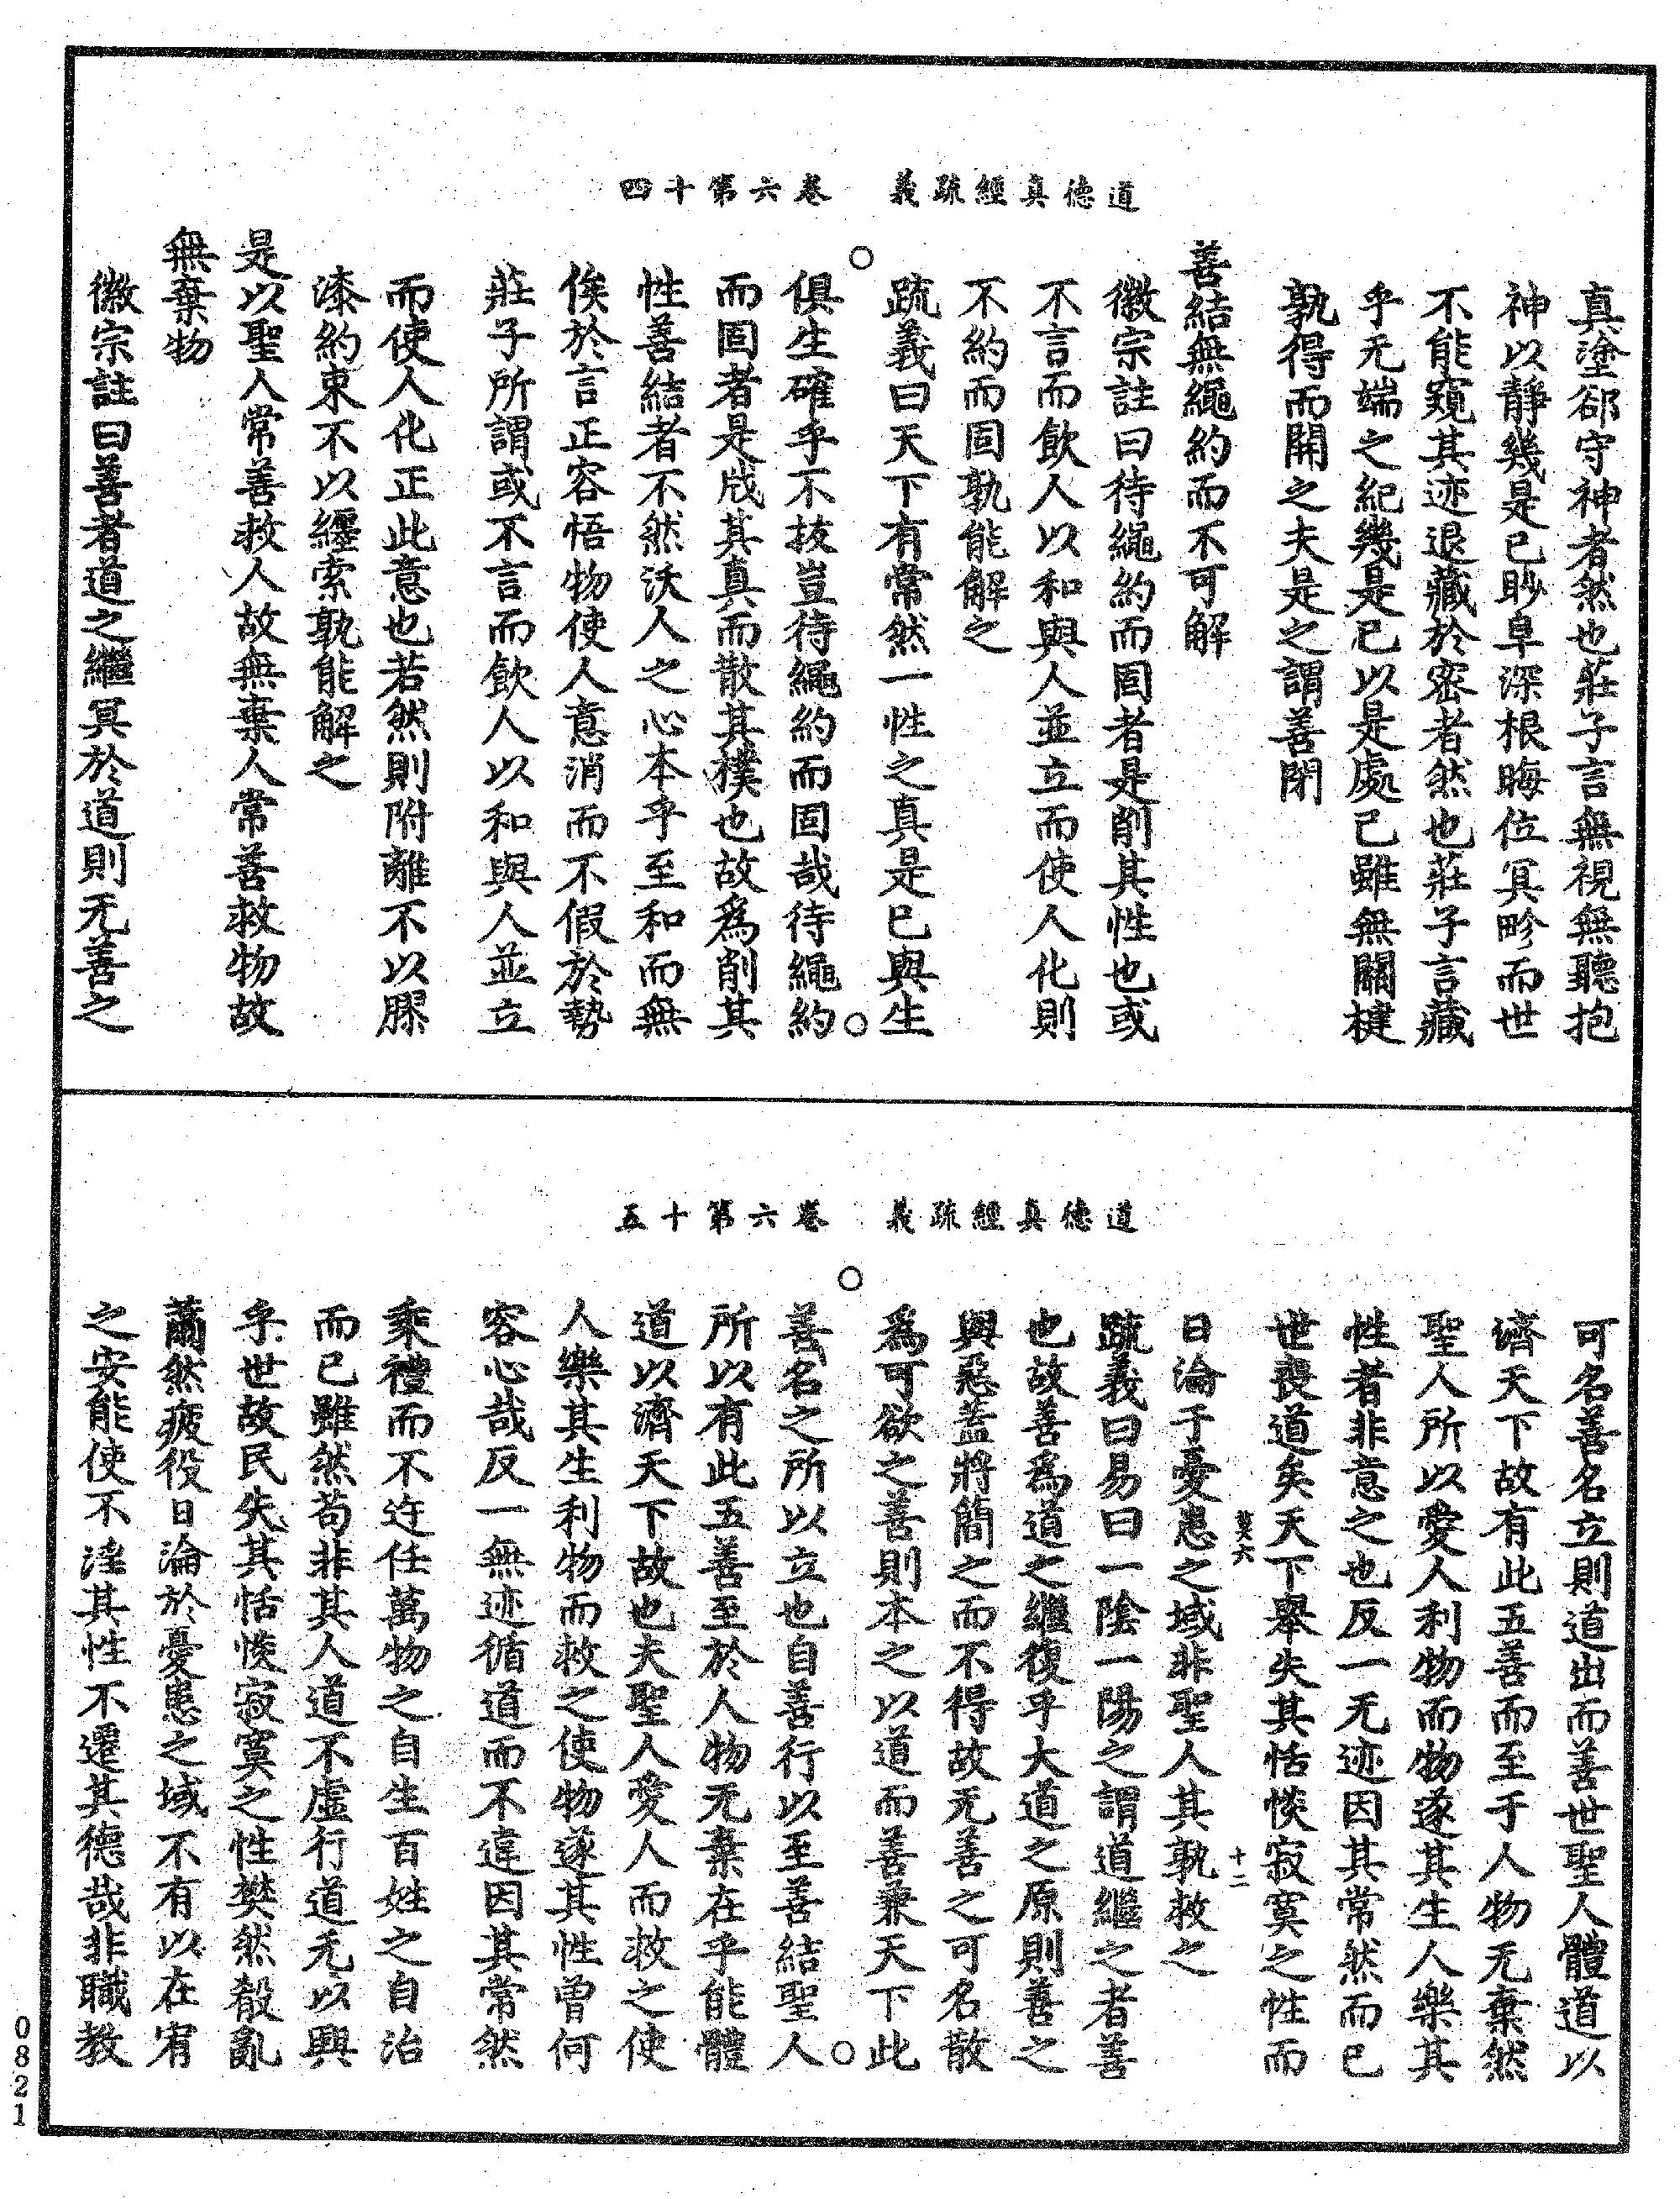 道德真經疏義　卷六第十四
真塗郤守神者然也莊子言無視無聽抱
神以靜幾是已眇阜深根晦位冥畛而世
不能窺其迹退藏於密者然也莊子言藏
乎无端之紀幾是已以是處己雖無關楗
孰得而開之夫是之謂善閉
善結無繩約而不可解
徽宗註曰待繩約而固者是削其性也或
不言而飲人以和與人並立而使人化則
不約而固孰能解之
疏義曰天下有常然一性之真是已與生
俱生確乎不拔豈待繩約而固哉待繩約
而固者是戕其真而散其樸也故爲削其
性善結者不然沃人之心本乎至和而無
俟於言正容悟物使人意消而不假於勢
莊子所謂或不言而飲人以和與人並立
而使人化正此意也若然則附離不以膠
漆約束不以纆索孰能解之
是以聖人常善救人故無棄人常善救物故
無棄物
徽宗註曰善者道之繼冥於道則无善之
道德真經疏義　卷六第十五
可名善名立則道出而善世聖人體道以
濟天下故有此五善而至于人物无棄然
聖人所以愛人利物而物遂其生人樂其
性者非意之也反一无迹因其常然而已
世喪道矣天下舉失其恬惔寂寞之性而
日淪于憂患之域非聖人其孰救之
十二
疏義曰易曰一陰一陽之謂道繼之者善
也故善爲道之繼復乎大道之原則善之
與惡蓋將簡之而不得故无善之可名散
爲可欲之善則本之以道而善兼天下此
善名之所以立也自善行以至善結聖人
所以有此五善至於人物无棄在乎能體
道以濟天下故也夫聖人愛人而救之使
人樂其生利物而救之使物遂其性曾何
容心哉反一無迹循道而不違因其常然
乘禮而不迕任萬物之自生百姓之自治
而已雖然苟非其人道不虛行道无以興
乎世故民失其恬惔寂寞之性樊然殽亂
薾然疲役日淪於憂患之域不有以在宥
之安能使不淫其性不遷其德哉非職教
0821